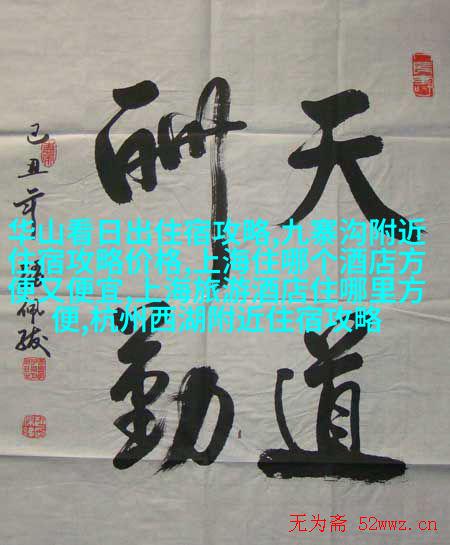 天道
酬勤
己丑
华山看日出住宿攻略,九寨沟附近
住宿攻略价格,上海住哪个酒店方
便又便宜,上海旅游酒店住哪里方
便,杭州西湖附近住宿攻略
无为斋 52wwz.cn